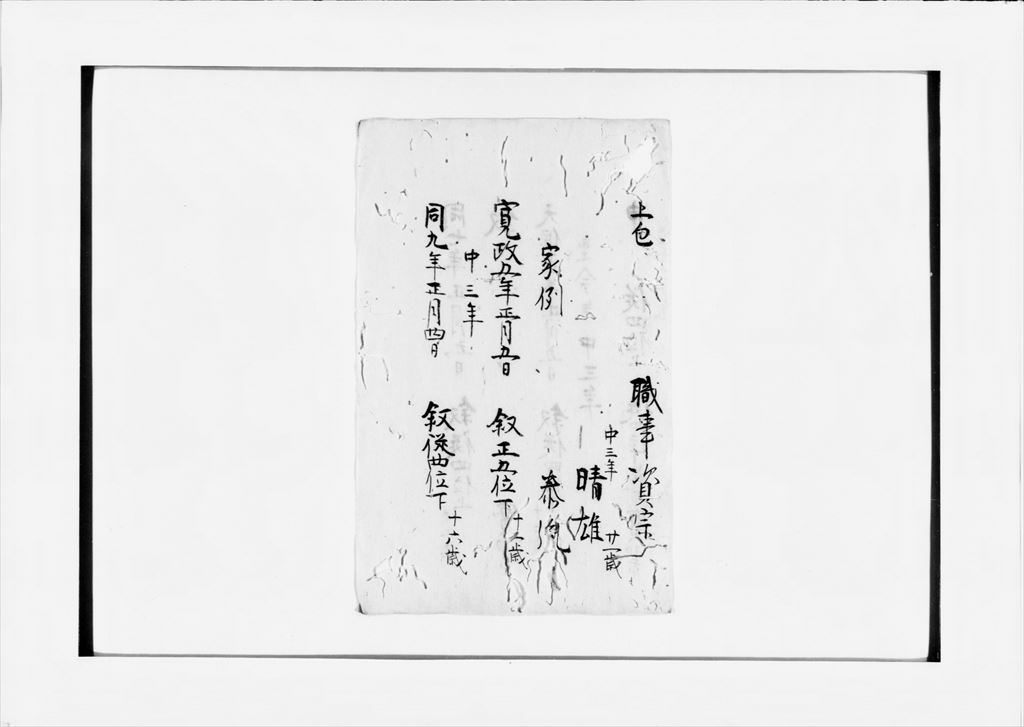 上包 職事 資宗
中三年 廿一歳
晴雄
家例 泰胤
寛政五年正月五日 叙正五位下 十二歳
中三年
同九年正月四日 叙従四位下 十六歳